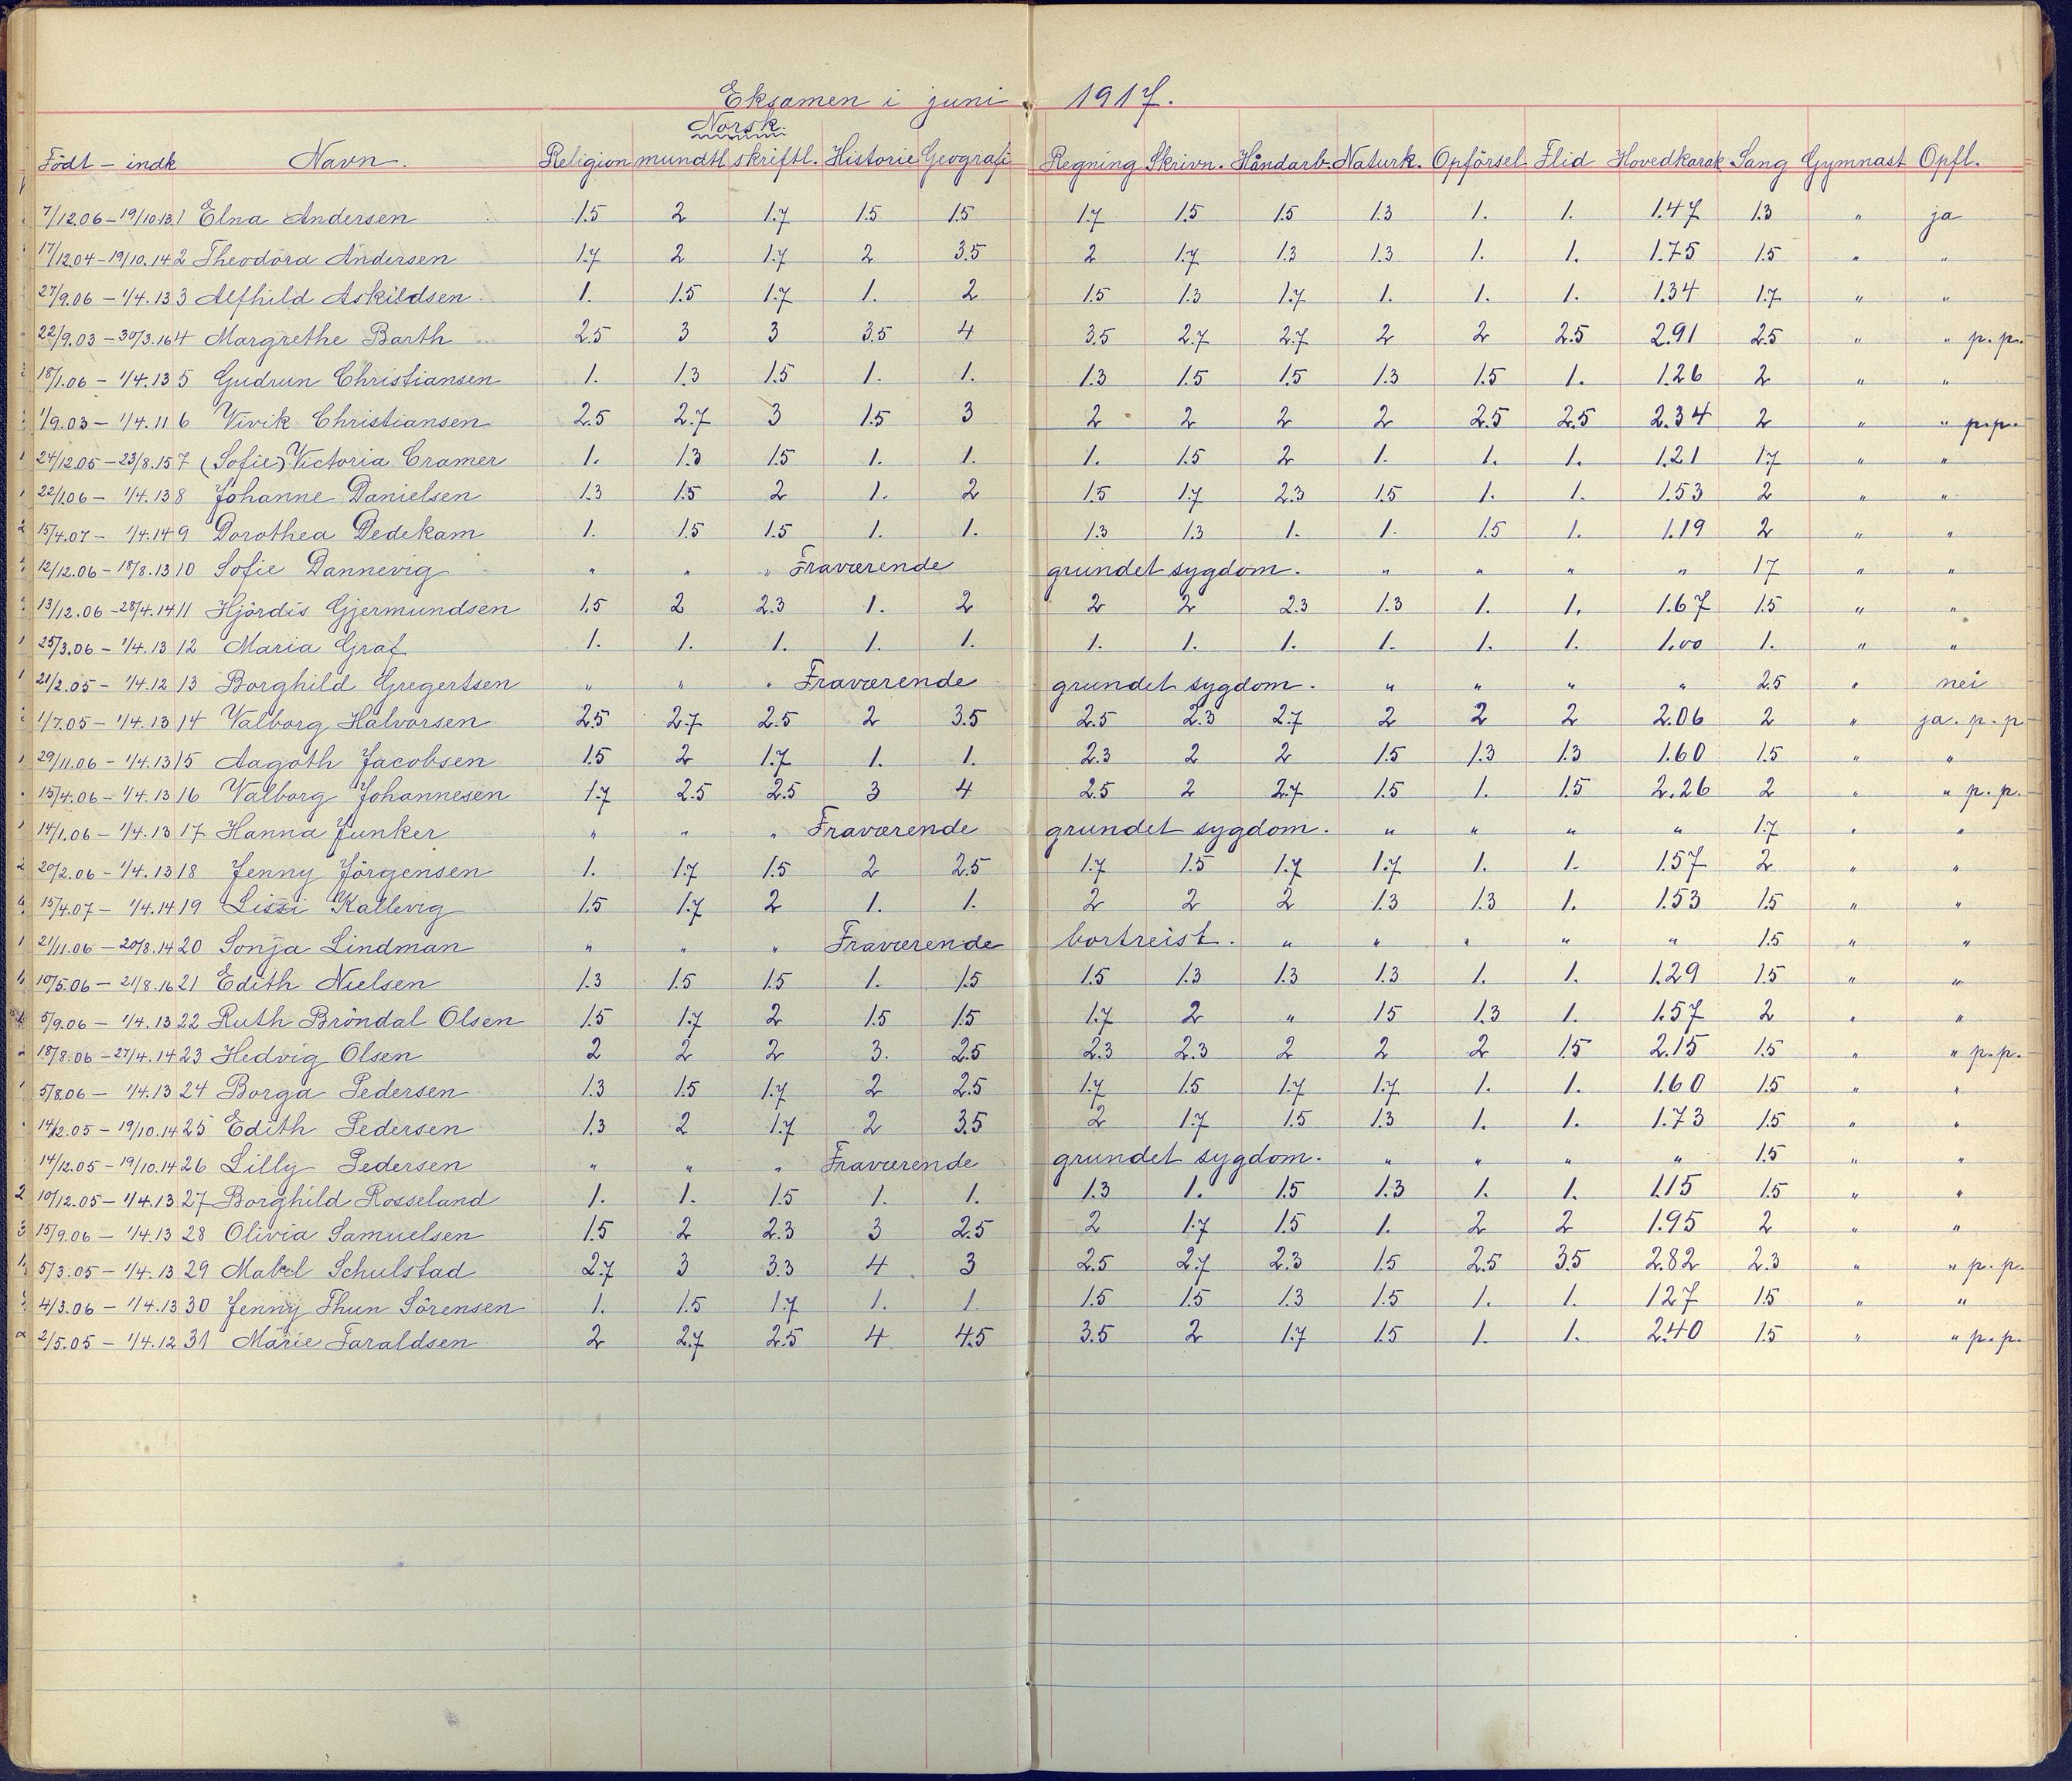 Eksamen i juni 1917.
Norsk.
Födt – indk Navn. Religion mundtl skriftl. Historie Geografi Regning Skrivn. Håndarb. Naturk. Opförsel Flid Hovedkarak. Sang Gymnast Opfl.
7/12.06 – 19/10.13 1 Elna Andersen 1.5 2 1.7 1.5 1.5 1.7 1.5 1.5 1.3 1. 1. 1.47 1.3 " ja
17/12.04 – 19/10.14 2 Theodora Andersen 1.7 2 1.7 2 3.5 2 1.7 1.3 1.3 1. 1. 1.75 1.5 " "
27/9.06 – 1/4.13 3 Alfhild Askildsen 1. 1.5 1.7 1. 2 1.5 1.3 1.7 1. 1. 1. 1.34 1.7 " "
22/9.03 – 30/3.16 4 Margrethe Barth 2.5 3 3 3.5 4 3.5 2.7 2.7 2 2 2.5 2.91 2.5 " " p.p.
18/1.06 – 1/4.13 5 Gudrun Christiansen 1. 1.3 1.5 1. 1. 1.3 1.5 1.5 1.3 1.5 1. 1.26 2 " "
1/9.03 – 1/4.11 6 Vivik Christiansen 2.5 2.7 3 1.5 3 2 2 2 2 2.5 2.5 2.34 2 " " p.p.
24/12.05 – 23/8.15 7 (Sofie) Victoria Cramer 1. 1.3 1.5 1. 1. 1. 1.5 2 1. 1. 1. 1.21 1.7 " "
22/1.06 – 1/4.13 8 Johanne Danielsen 1.3 1.5 2 1. 2 1.5 1.7 2.3 1.5 1. 1. 1.53 2 " "
15/4.07 – 1/4.14 9 Dorothea Dedekam 1. 1.5 1.5 1. 1. 1.3 1.3 1. 1. 1.5 1. 1.19 2 " "
12/12.06 – 18/8.13 10 Sofie Dannevig " " " Fraværende grundet sygdom. " " " " 1.7 " "
13/12.06 – 28/4.14 11 Hjördis Gjermundsen 1.5 2 2.3 1. 2 2 2 2.3 1.3 1. 1. 1.67 1.5 " "
25/3.06 – 1/4.13 12 Maria Graf 1. 1. 1. 1. 1. 1. 1. 1. 1. 1. 1. 1.00 1. " "
21/2.05 – 1/4.12 13 Borghild Gregertsen " " " Fraværende grundet sygdom. " " " " 2.5 " nei
1/7.05 – 1/4.13 14 Valborg Halvorsen 2.5 2.7 2.5 2 3.5 2.5 2.3 2.7 2 2 2 2.06 2 " ja. p.p
29/11.06 – 1/4.13 15 Aagoth Jacobsen 1.5 2 1.7 1. 1. 2.3 2 2 1.5 1.3 1.3 1.60 1.5 " "
15/4.06 – 1/4.13 16 Valborg Johannesen 1.7 2.5 2.5 3 4 2.5 2 2.7 1.5 1. 1.5 2.26 2 " " p.p.
14/1.06 – 1/4.13 17 Hanna Junker " " " Fraværende grundet sygdom. " " " " 1.7 " "
20/2.06 – 1/4.13 18 Jenny Jörgensen 1. 1.7 1.5 2 2.5 1.7 1.5 1.7 1.7 1. 1. 1.57 2 " "
15/4.07 – 1/4.14 19 Lissi Kallevig 1.5 1.7 2 1. 1. 2 2 2 1.3 1.3 1. 1.53 1.5 " "
21/11.06 – 20/8.14 20 Sonja Lindman " " " Fraværende bortreist. " " " " " 1.5 " "
10/5.06 – 21/8.16 21 Edith Nielsen 1.3 1.5 1.5 1. 1.5 1.5 1.3 1.3 1.3 1. 1. 1.29 1.5 " "
5/9.06 – 1/4.13 22 Ruth Bröndal Olsen 1.5 1.7 2 1.5 1.5 1.7 2 " 1.5 1.3 1. 1.57 2 " "
18/8.06 – 27/4.14 23 Hedvig Olsen 2 2 2 3. 2.5 2.3 2.3 2 2 2 1.5 2.15 1.5 " " p.p.
5/8.06 – 1/4.13 24 Borga Pedersen 1.3 1.5 1.7 2 2.5 1.7 1.5 1.7 1.7 1. 1. 1.60 1.5 " "
14/12.05 – 19/10.14 25 Edith Pedersen 1.3 2 1.7 2 3.5 2 1.7 1.5 1.3 1. 1. 1.73 1.5 " "
14/12.05 – 19/10.14 26 Lilly Pedersen " " " Fraværende grundet sygdom. " " " " 1.5 " "
10/12.05 – 1/4.13 27 Borghild Rosseland 1. 1. 1.5 1. 1. 1.3 1. 1.5 1.3 1. 1. 1.15 1.5 " "
15/9.06 – 1/4.13 28 Olivia Samuelsen 1.5 2 2.3 3 2.5 2 1.7 1.5 1. 2 2 1.95 2 " "
5/3.05 – 1/4.13 29 Mabel Schulstad 2.7 3 3.3 4 3 2.5 2.7 2.3 1.5 2.5 3.5 2.82 2.3 " " p.p.
4/3.06 – 1/4.13 30 Jenny Thun Sörensen 1. 1.5 1.7 1. 1. 1.5 1.5 1.3 1.5 1. 1. 1.27 1.5 " "
2/5.05 – 1/4.12 31 Marie Taraldsen 2 2.7 2.5 4 4.5 3.5 2 1.7 1.5 1. 1. 2.40 1.5 " " p.p.